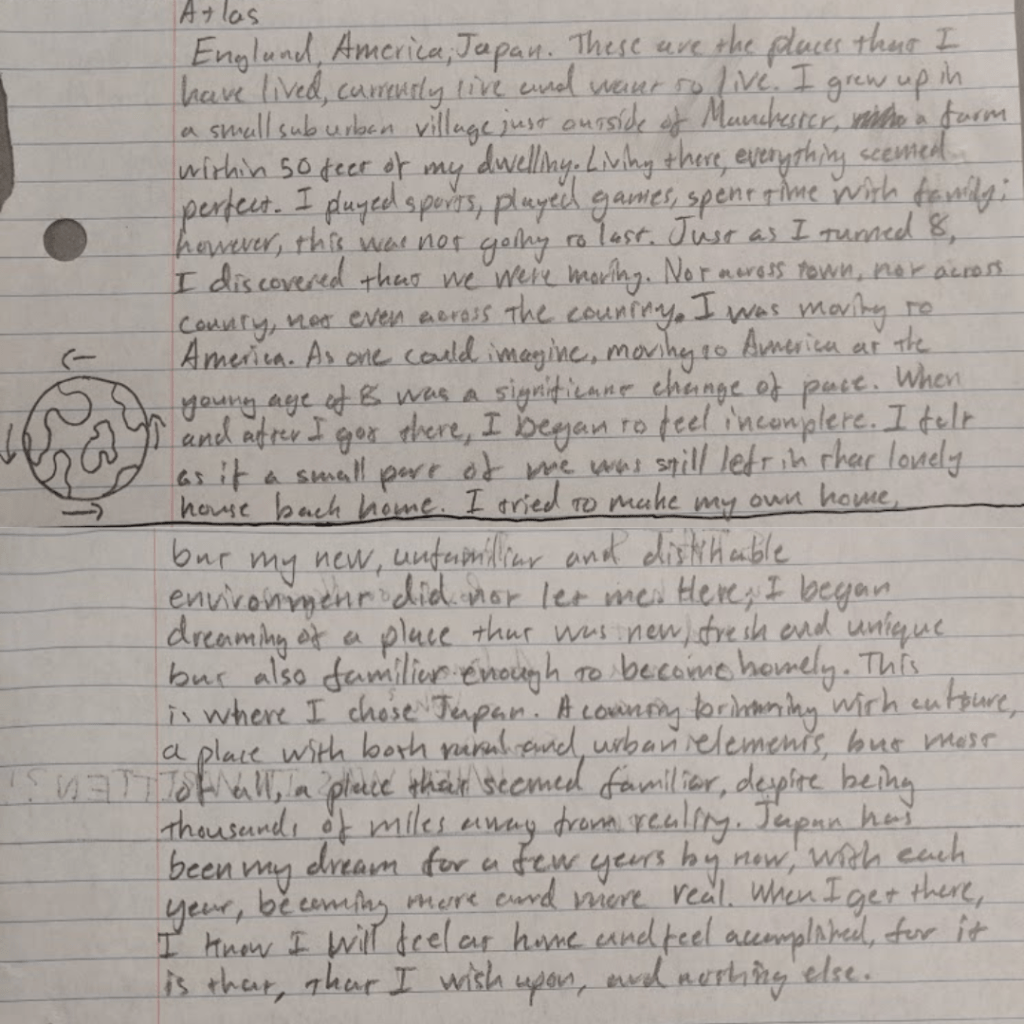 Atlas
England, America, Japan. These are the places that I
have lived, currently live and want to live. I grew up in
a small suburban village just outside of Manchester, a farm
within 50 feet of my dwelling. Living there, everything seemed
perfect. I played sports, played games, spent time with family;
however, this was not going to last. Just as I turned 8,
I discovered that we were moving. Not across town, not across
county, not even across the country. I was moving to
America. As one could imagine, moving to America at the
young age of 8 was a significant change of pace. When
and after I got there, I began to feel incomplete. I felt
as if a small part of me was still left in that lonely
house back home. I tried to make my own home,
but my new, unfamiliar and
environment did not let me. Here, I began
dreaming of a place that was new, fresh and unique
but also familiar enough to become homely. This
is where I chose Japan. A country brimming with culture,
a place with both rural and urban elements, but most
of all, a place that seemed familiar, despite being
thousands of miles away from reality. Japan has
been my dream for a few years by now, with each
year, becoming more and more real. When I get there,
I know I will feel at home and feel accomplished, for it
is that, that I wish upon, and nothing else.